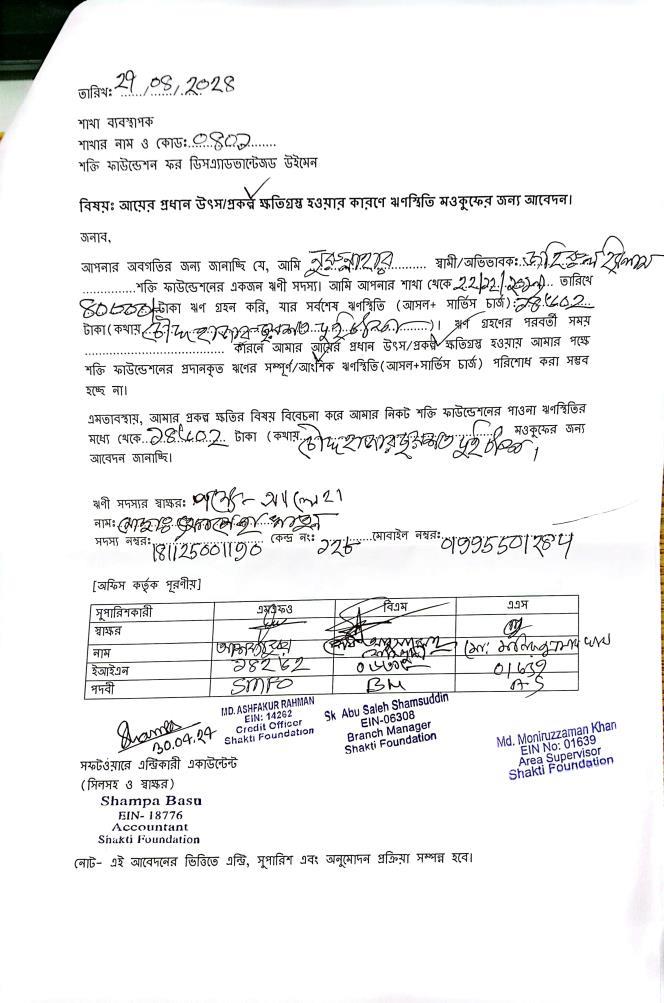 তারিখ: 29/08/2028
শাখা ব্যবস্থাপক
শাখার নাম ও কোড: 0802
শক্তি ফাউন্ডেশন ফর ডিসএ্যাডভান্টেজড উইমেন
বিষয়ঃ আয়ের প্রধান উৎস/প্রকল্প ক্ষতিগ্রস্থ হওয়ার কারণে ঋণস্থিতি মওকুফের জন্য আবেদন।
জনাব,
আপনার অবগতির জন্য জানাচ্ছি যে, আমি নুরুন্নাহার স্বামী/অভিভাবক:
শক্তি ফাউন্ডেশনের একজন ঋণী সদস্য। আমি আপনার শাখা থেকে তারিখে
80000/- টাকা ঋণ গ্রহন করি, যার সর্বশেষ ঋণস্থিতি (আসল+ সার্ভিস চার্জ):
টাকা (কথায় চৌদ্দ হাজার দুই টাকা)। ঋণ গ্রহণের পরবর্তী সময়
কারনে আমার আয়ের প্রধান উৎস/প্রকল্প ক্ষতিগ্রস্থ হওয়ায় আমার পক্ষে
শক্তি ফাউন্ডেশনের প্রদানকৃত ঋণের সম্পূর্ণ/আংশিক ঋণস্থিতি(আসল+সার্ভিস চার্জ) পরিশোধ করা সম্ভব
হচ্ছে না।
এমতাবস্থায়, আমার প্রকল্প ক্ষতির বিষয় বিবেচনা করে আমার নিকট শক্তি ফাউন্ডেশনের পাওনা ঋণস্থিতির
মধ্যে থেকে টাকা (কথায় চৌদ্দ হাজার দুই টাকা মওকুফের জন্য
আবেদন জানাচ্ছি।
ঋণী সদস্যর স্বাক্ষর:
নাম:
সদস্য নম্বর: 181125001190 কেন্দ্র নং: মোবাইল নম্বর:
[অফিস কর্তৃক পূরণীয়]
সুপারিশকারী এমএফও বিএম এএস
স্বাক্ষর
নাম
ইআইএন 01639
পদবী SMFO BM A-S
MD. ASHFAKUR RAHMAN
EIN: 14262
Credit Officer
Shakti Foundation
Sk Abu Saleh Shamsuddin
EIN-06308
Branch Manager
Shakti Foundation
Md. Moniruzzaman Khan
EIN No: 01639
Area Supervisor
Shakti Foundation
Shampa
30.04.24
সফটওয়ারে এন্ট্রিকারী একাউন্টেন্ট
(সিলসহ ও স্বাক্ষর)
Shampa Basu
EIN- 18776
Accountant
Shakti Foundation
নোট- এই আবেদনের ভিত্তিতে এন্ট্রি, সুপারিশ এবং অনুমোদন প্রক্রিয়া সম্পন্ন হবে।